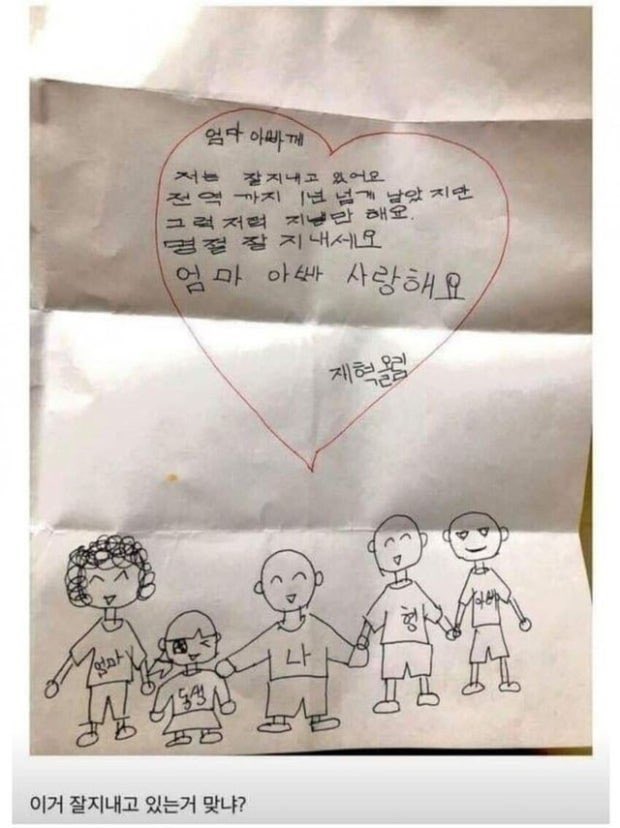 엄마 아빠께
저는 잘지내고 있어요
전역 까지 1년 넘게 남았지만
그럭저럭 지낼만 해요.
명절 잘 지내세요
엄마 아빠 사랑해요
재혁올림
엄마
동생
나
형
아빠
이거 잘지내고 있는거 맞냐?